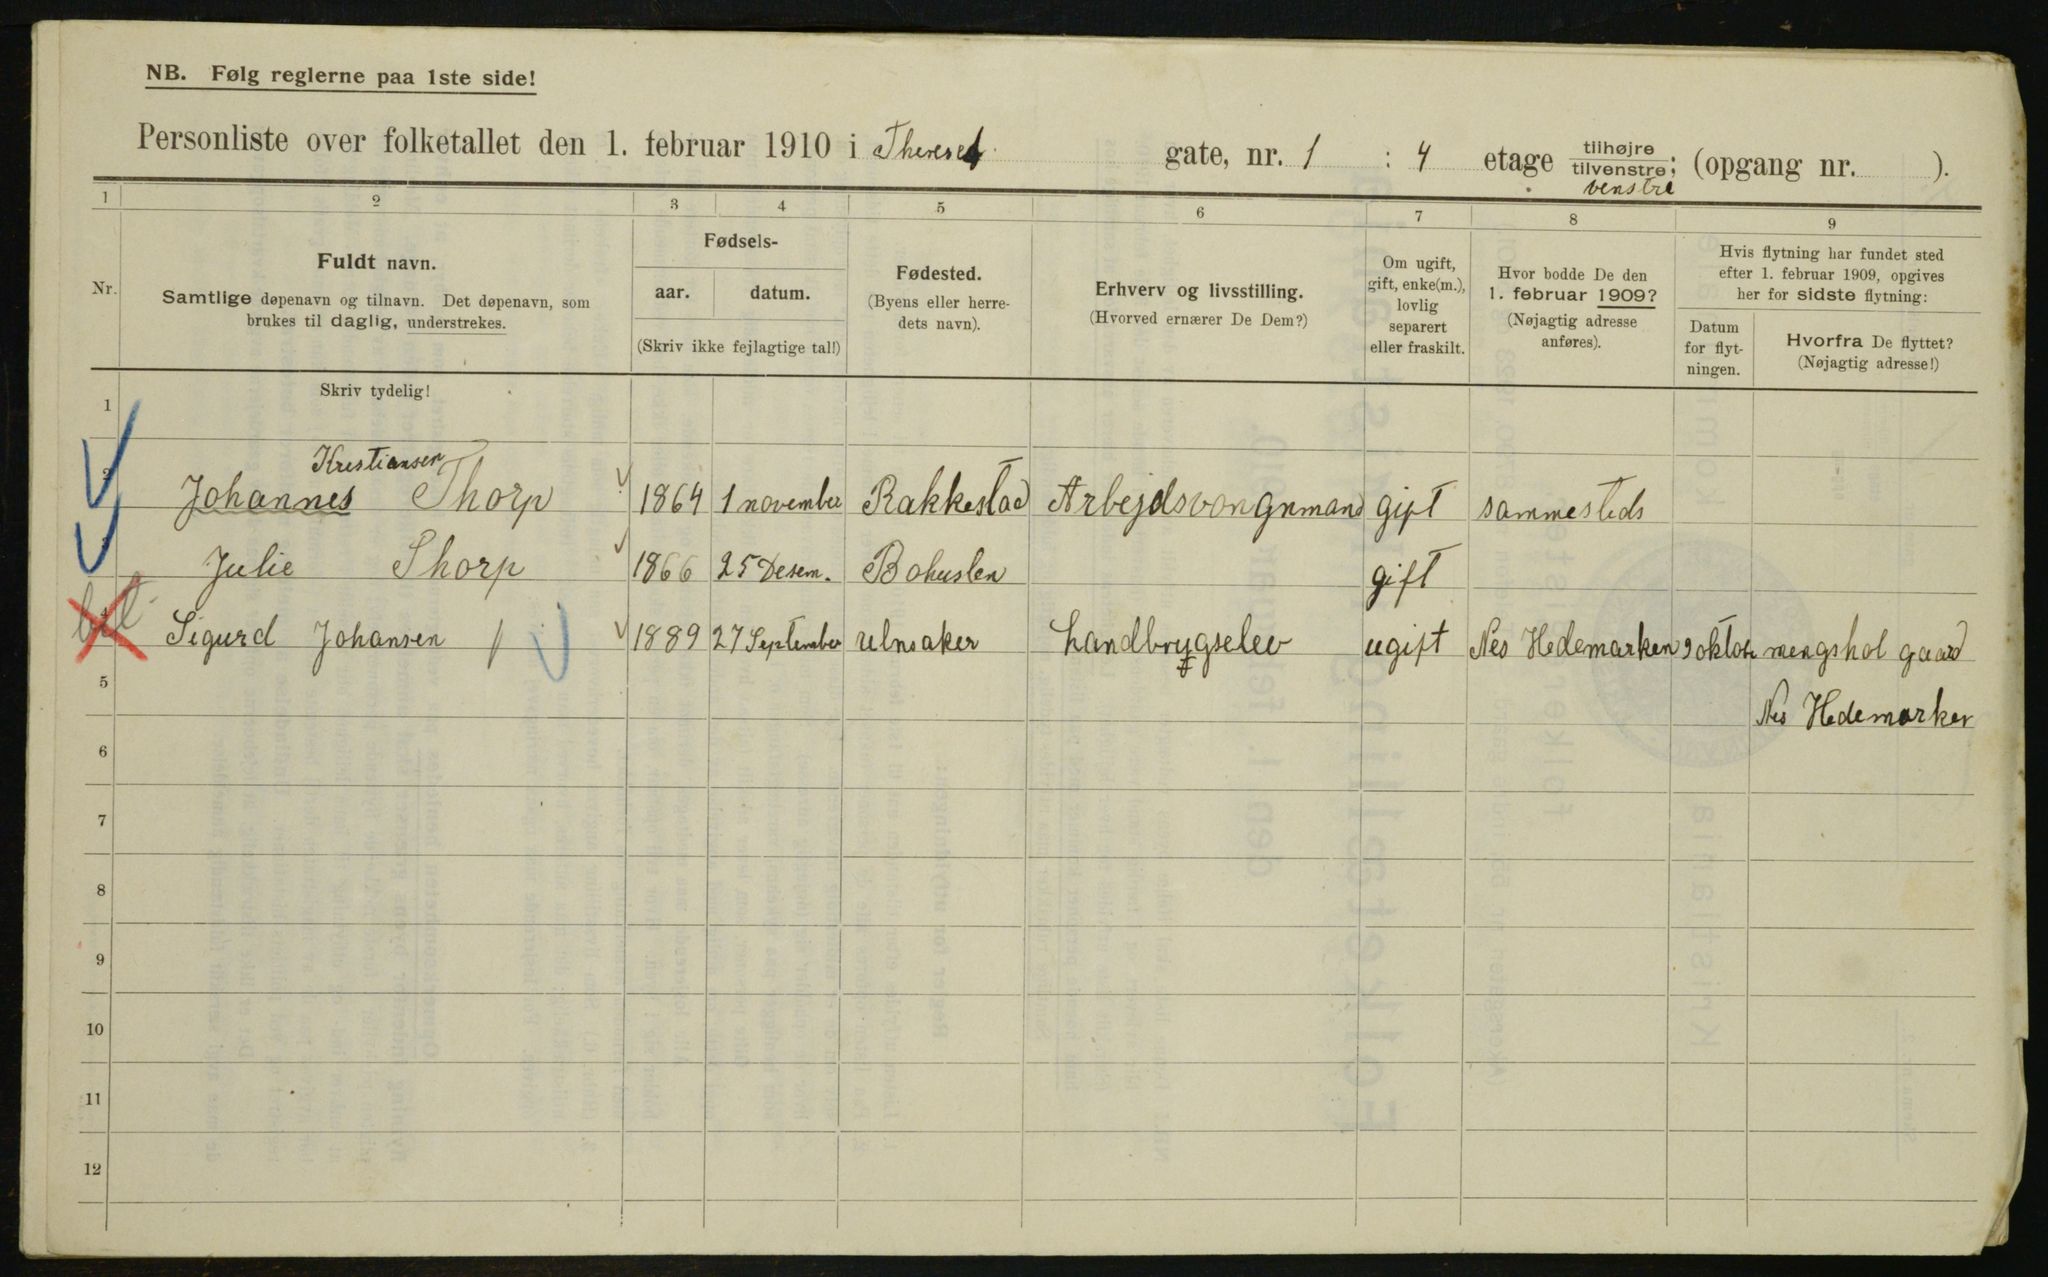 NB. Følg reglerne paa 1ste side!
Personliste over folketallet den 1. februar 1910 i Theresesgate, nr. 1 : 4 etage tilhøjre
tilvenstre; (opgang nr. ).
venstre
1 2 3 4 5 6 7 8 9
Nr.
Fuldt navn.
Samtlige døpenavn og tilnavn. Det døpenavn, som
brukes til daglig, understrekes.
Fødsels-
aar. datum.
(Skriv ikke fejlagtige tal!)
Fødested.
(Byens eller herre-
dets navn).
Erhverv og livsstilling.
(Hvorved ernærer De Dem?)
Om ugift,
gift, enke(m.),
lovlig
separert
eller fraskilt.
Hvor bodde De den
1. februar 1909?
(Nøjagtig adresse
anføres).
Hvis flytning har fundet sted
efter 1. februar 1909, opgives
her for sidste flytning:
Datum
for flyt-
ningen.
Hvorfra De flyttet?
(Nøjagtig adresse!)
Skriv tydelig!
1
Kristiansen
2 Johannes Thorp 1864 1 november Rakkestad Arbejdsvongnmand gift sammesteds
3 Julie Thorp 1866 25 Desem. Bohuslen gift
4 Sigurd Johansen 1889 27 September Ulnsaker Landbrygselev ugift Nes Hedemarken 9 oktobr mengshol gaard
5 Nes Hedemarken
6
7
8
9
10
11
12